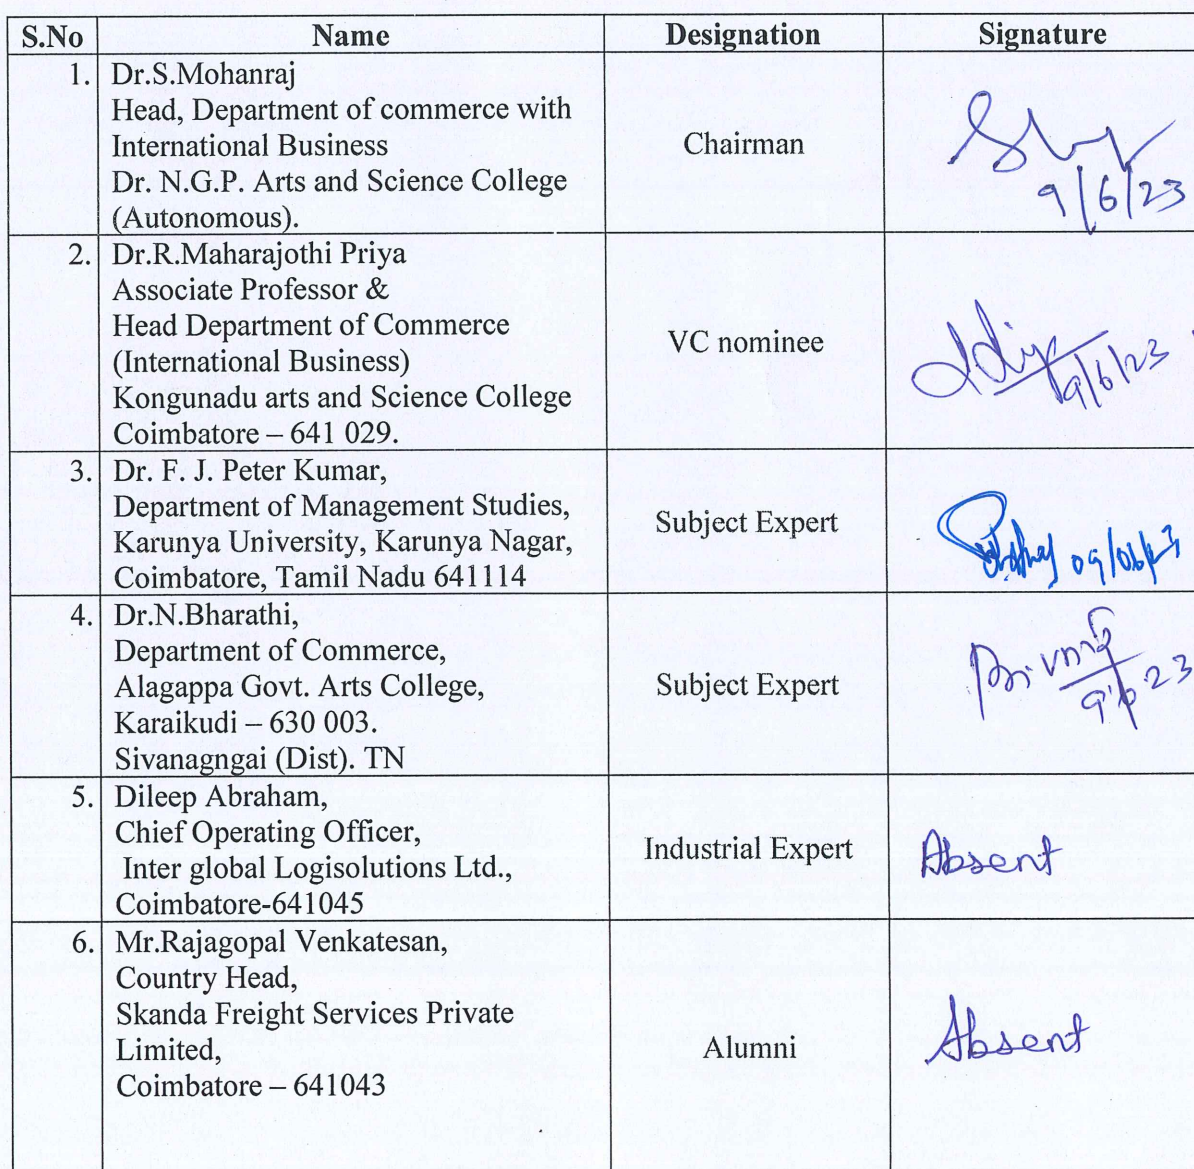 S.No Name Designation Signature
1. Dr.S.Mohanraj
Head, Department of commerce with
International Business
Dr. N.G.P. Arts and Science College
(Autonomous).
Chairman
9/6/23
2. Dr.R.Maharajothi Priya
Associate Professor &
Head Department of Commerce
(International Business)
Kongunadu arts and Science College
Coimbatore – 641 029.
VC nominee
9/6/23
3. Dr. F. J. Peter Kumar,
Department of Management Studies,
Karunya University, Karunya Nagar,
Coimbatore, Tamil Nadu 641114
Subject Expert
09/06/23
4. Dr.N.Bharathi,
Department of Commerce,
Alagappa Govt. Arts College,
Karaikudi – 630 003.
Sivanagngai (Dist). TN
Subject Expert
5. Dileep Abraham,
Chief Operating Officer,
Inter global Logisolutions Ltd.,
Coimbatore-641045
Industrial Expert
Absent
6. Mr.Rajagopal Venkatesan,
Country Head,
Skanda Freight Services Private
Limited,
Coimbatore – 641043
Alumni
Absent